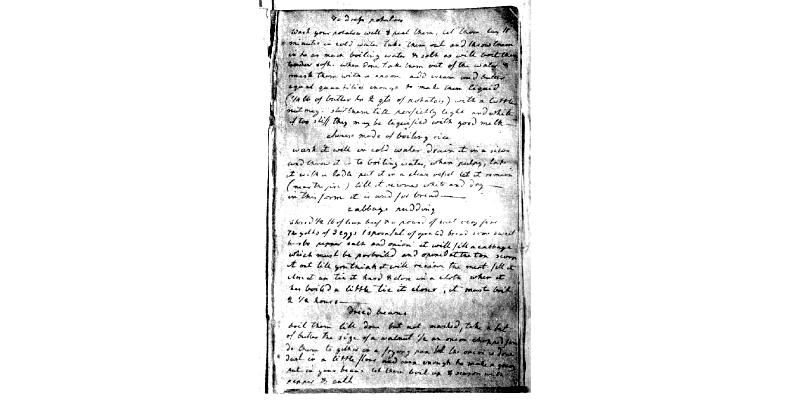 To dress potatoes
Wash your potatoes well & peel them, let them lay 10
minutes in cold water take them out and throw them
in to as much boiling water & salt as will boil them
soft. When done take them out of the water &
mash them with a spoon add cream and butter
equal quantities enough to make them liquid
of butter to 2 of potatoes) with a little
nutmeg. them till perfectly light and white
if too stiff they may be liquified with good milk
mode of boiling rice
wash it well in cold water drain it in a
and throw it in to boiling water, when
it with a ladle put it in a clean vessel let it remain
(near the fire) till it becomes white and dry
in this form it is used for bread
cabbage pudding
shred 1/2 lb of lean beef & a pound of suet very fine
The yolks of 3 eggs 1 spoonful of grated bread some sweet
herbs pepper salt and onion it will fill a cabbage
which must be parboiled and opened at the top scoop
it out till you think it will receive the meat fill it
close it up tie it hard & close in a cloth when it
has boiled a little tie it closer, it must boil
2 1/2 hours
Dried beans
boil them till done but not mashed, take a bit
of butter the size of a walnut 1/2 an onion chopped fine
do them together in a frying pan till the onion is done
dust in a little flour and enough to make a gravy
put in your beans let them boil up & season with
pepper & salt